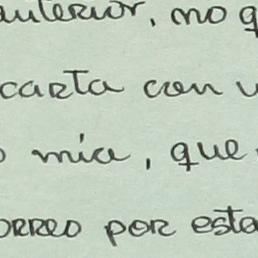 anterior, no q
carta con u
o mia, que
orreo por esta